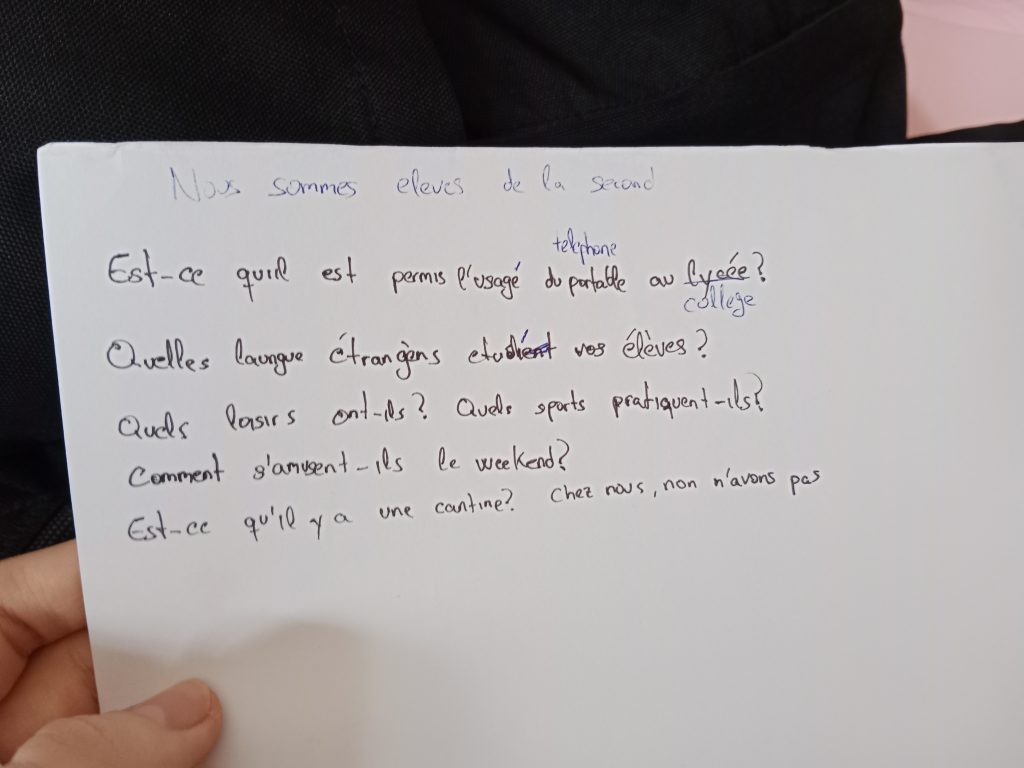 Nous sommes eleves de la second
telephone
Est-ce quil est permis l'usagé du portable au lycée?
college
Quelles laungue étrangèns etudient vos élèves?
Quels loisirs ont-ils? Quels sports pratiquent-ils?
Comment s'amusent-ils le weekend?
Est-ce qu'il y a une cantine? Chez nous, non n'avons pas